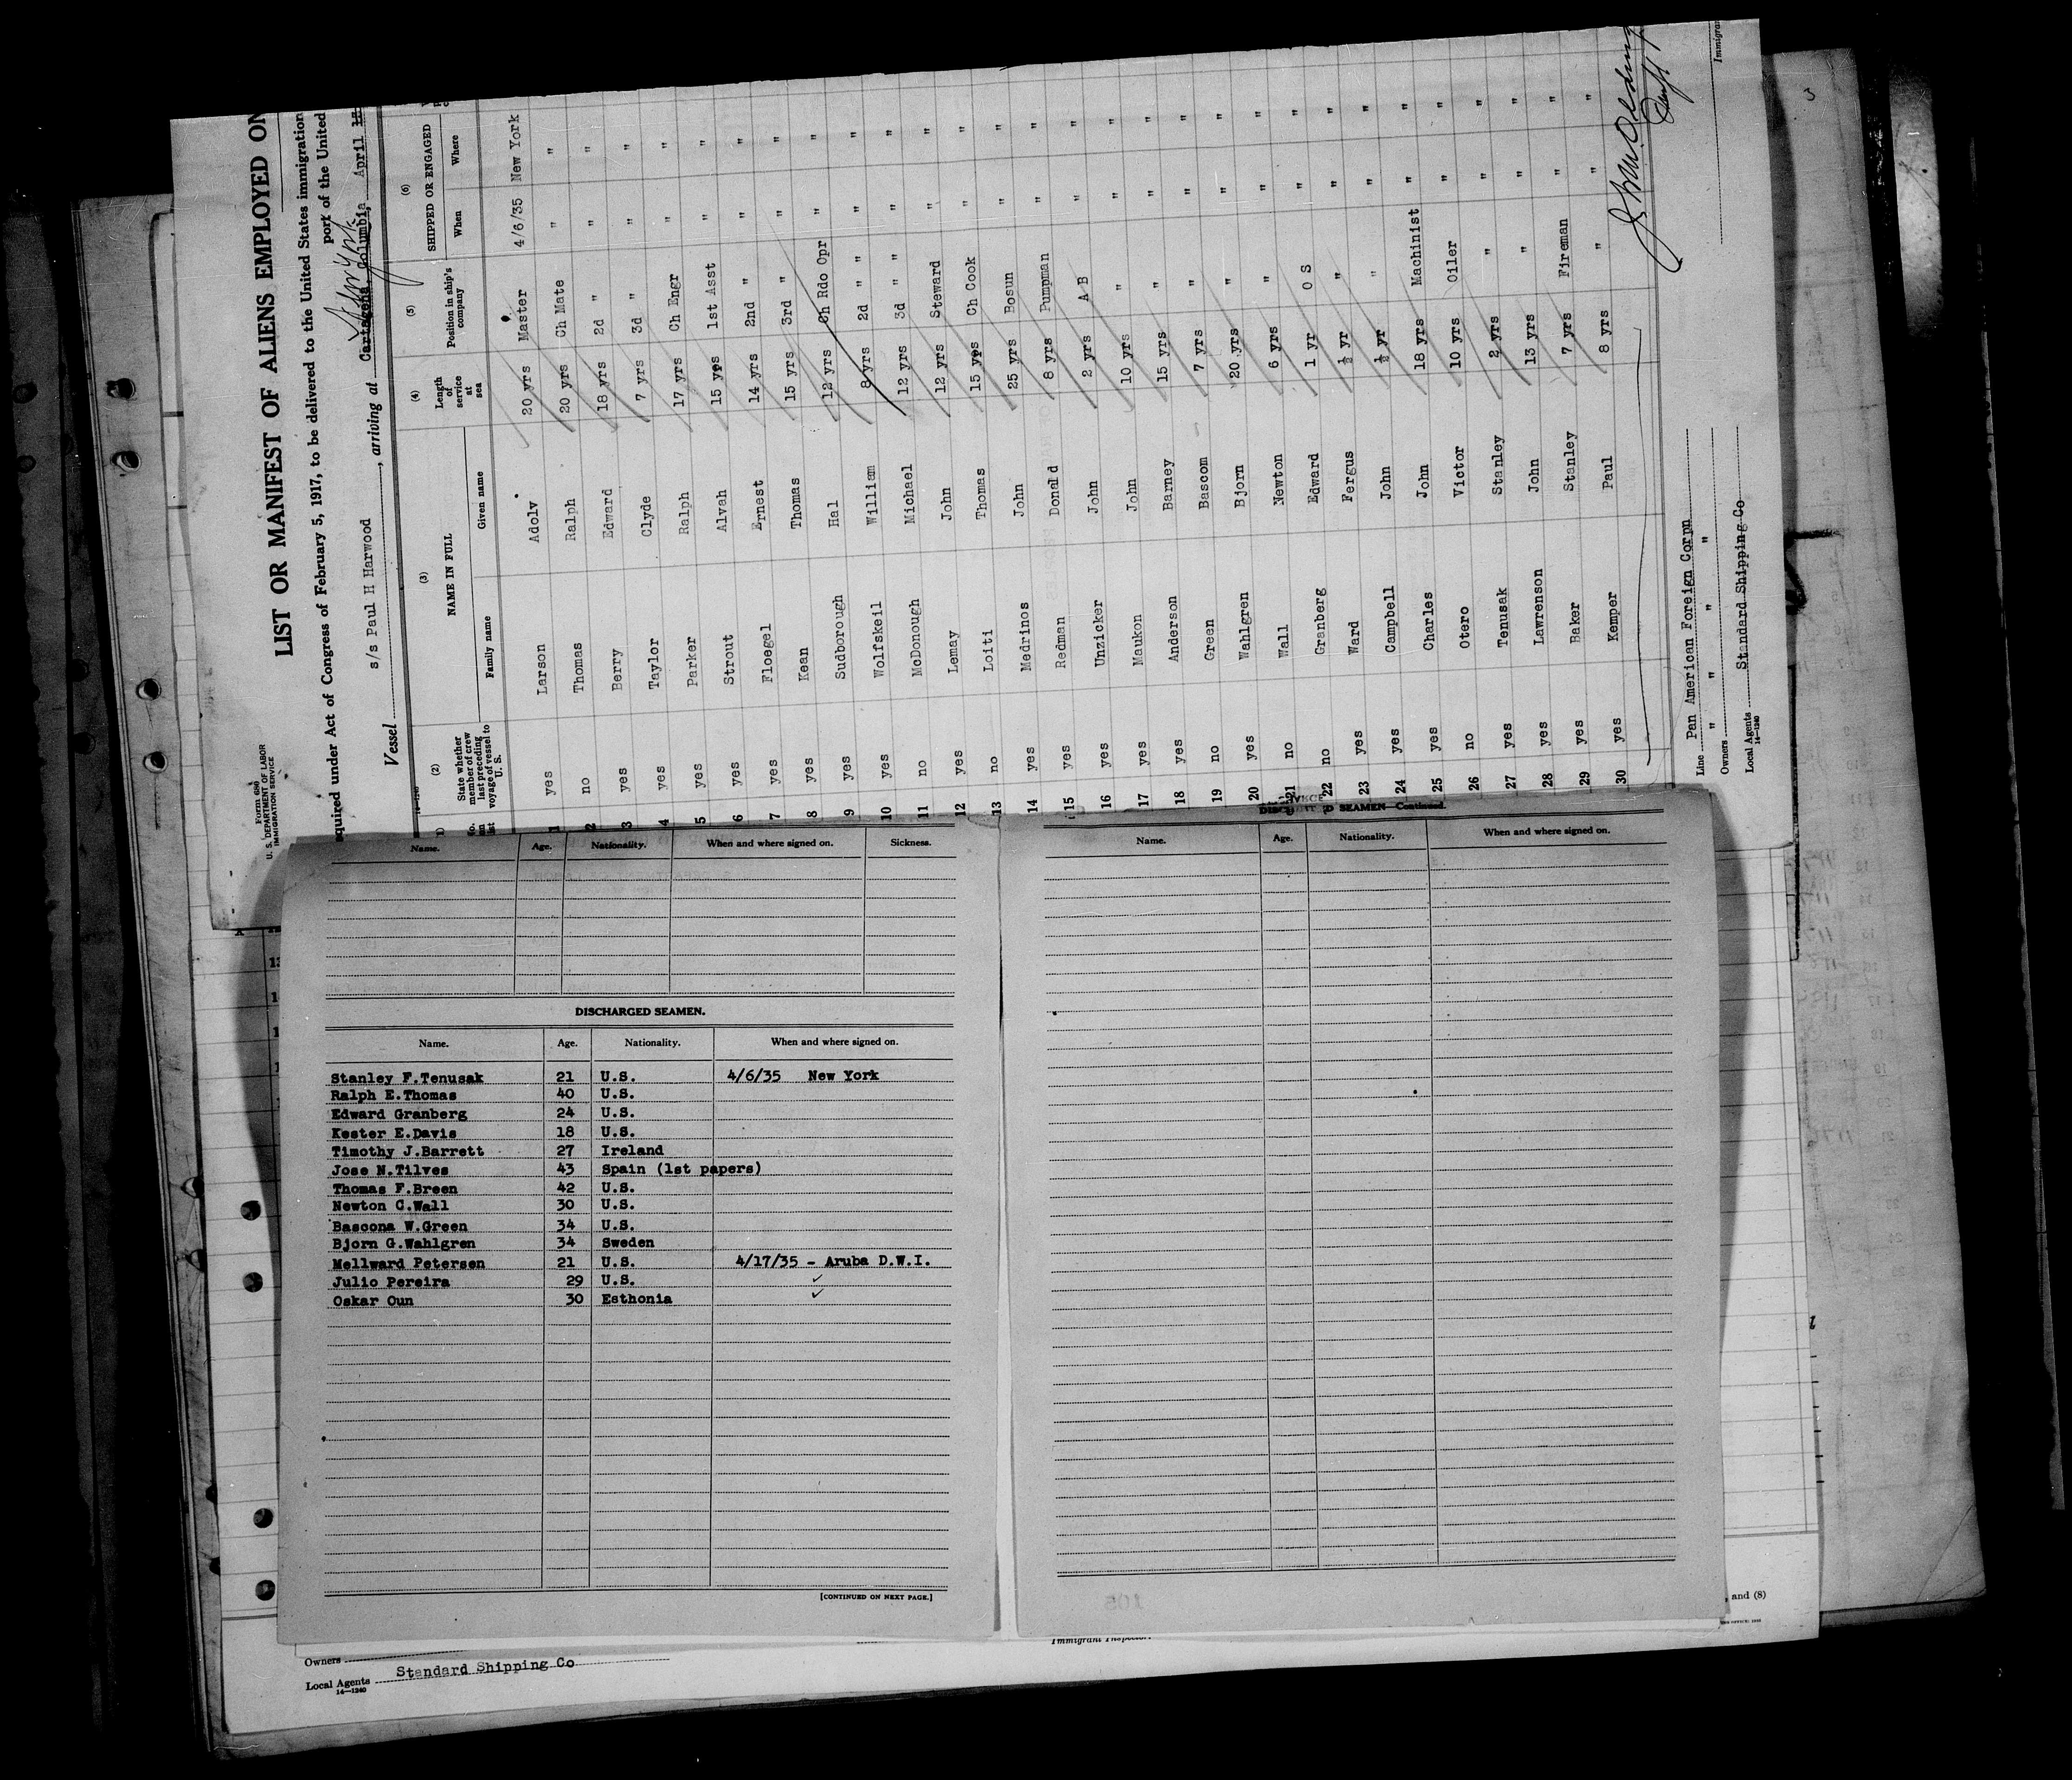 Form 680
U. S. DEPARTMENT OF LABOR
IMMIGRATION SERVICE
LIST OR MANIFEST OF ALIENS EMPLOYED ON
equired under Act of Congress of February 5, 1917, to be delivered to the United States immigration
port of the United
Vessel s/s Paul H Harwood, arriving at Cartagena, Columbia, April
14—1240
(1) (2) (3) (4) (5) (6)
State whether member of crew last preceding voyage of vessel to U. S. NAME IN FULL Length of service at sea Position in ship's company SHIPPED OR ENGAGED
Family name Given name When Where
1 yes Larson Adolv 20 yrs Master 4/6/35 New York
2 no Thomas Ralph 20 yrs Ch Mate " "
3 yes Berry Edward 18 yrs 2d " " "
4 yes Taylor Clyde 7 yrs 3d " " "
5 yes Parker Ralph 17 yrs Ch Engr " "
6 yes Strout Alvah 15 yrs 1st Asst " "
7 yes Floegel Ernest 14 yrs 2nd " " "
8 yes Kean Thomas 15 yrs 3rd " " "
9 yes Sudborough Hal 12 yrs Ch Rdo Opr " "
10 yes Wolfskeil William 8 yrs 2d " " " "
11 no McDonough Michael 12 yrs 3d " " " "
12 yes Lemay John 12 yrs Steward " "
13 no Loiti Thomas 15 yrs Ch Cook " "
14 yes Medrinos John 25 yrs Bosun " "
15 yes Redman Donald 8 yrs Pumpman " "
16 yes Unzicker John 2 yrs A B " "
17 yes Maukon John 10 yrs " " "
18 yes Anderson Barney 15 yrs " " "
19 no Green Bascom 7 yrs " " "
20 yes Wahlgren Bjorn 20 yrs " " "
21 no Wall Newton 6 yrs " " "
22 no Granberg Edward 1 yr O S " "
23 yes Ward Fergus ½ yr " " "
24 yes Campbell John ½ yr " " "
25 yes Charles John 18 yrs Machinist " "
26 no Otero Victor 10 yrs Oiler " "
27 yes Tenusak Stanley 2 yrs " " "
28 yes Lawrenson John 13 yrs " " "
29 yes Baker Stanley 7 yrs Fireman " "
30 yes Kemper Paul 8 yrs " " "
Line Pan American Foreign Corpn
Owners " " " "
Local Agents Standard Shipping Co
14—1240
Immigran
Name. Age. Nationality. When and where signed on. Sickness.
DISCHARGED SEAMEN.
Name. Age. Nationality. When and where signed on.
Stanley F.Tenusak 21 U.S. 4/6/35 New York
Ralph E.Thomas 40 U.S.
Edward Granberg 24 U.S.
Kester E.Davis 18 U.S.
Timothy J.Barrett 27 Ireland
Jose N.Tilves 43 Spain (1st papers)
Thomas F.Breen 42 U.S.
Newton C.Wall 30 U.S.
Bascona W.Green 34 U.S.
Bjorn G.Wahlgren 34 Sweden
Mellward Petersen 21 U.S. 4/17/35 - Aruba D.W.I.
Julio Pereira 29 U.S. ✓
Oskar Oun 30 Esthonia ✓
[CONTINUED ON NEXT PAGE.]
SEAMEN—Continued.
Name. Age. Nationality. When and where signed on.
and (8)
Immigrant Inspector.
Owners
Local Agents Standard Shipping Co
14—1240